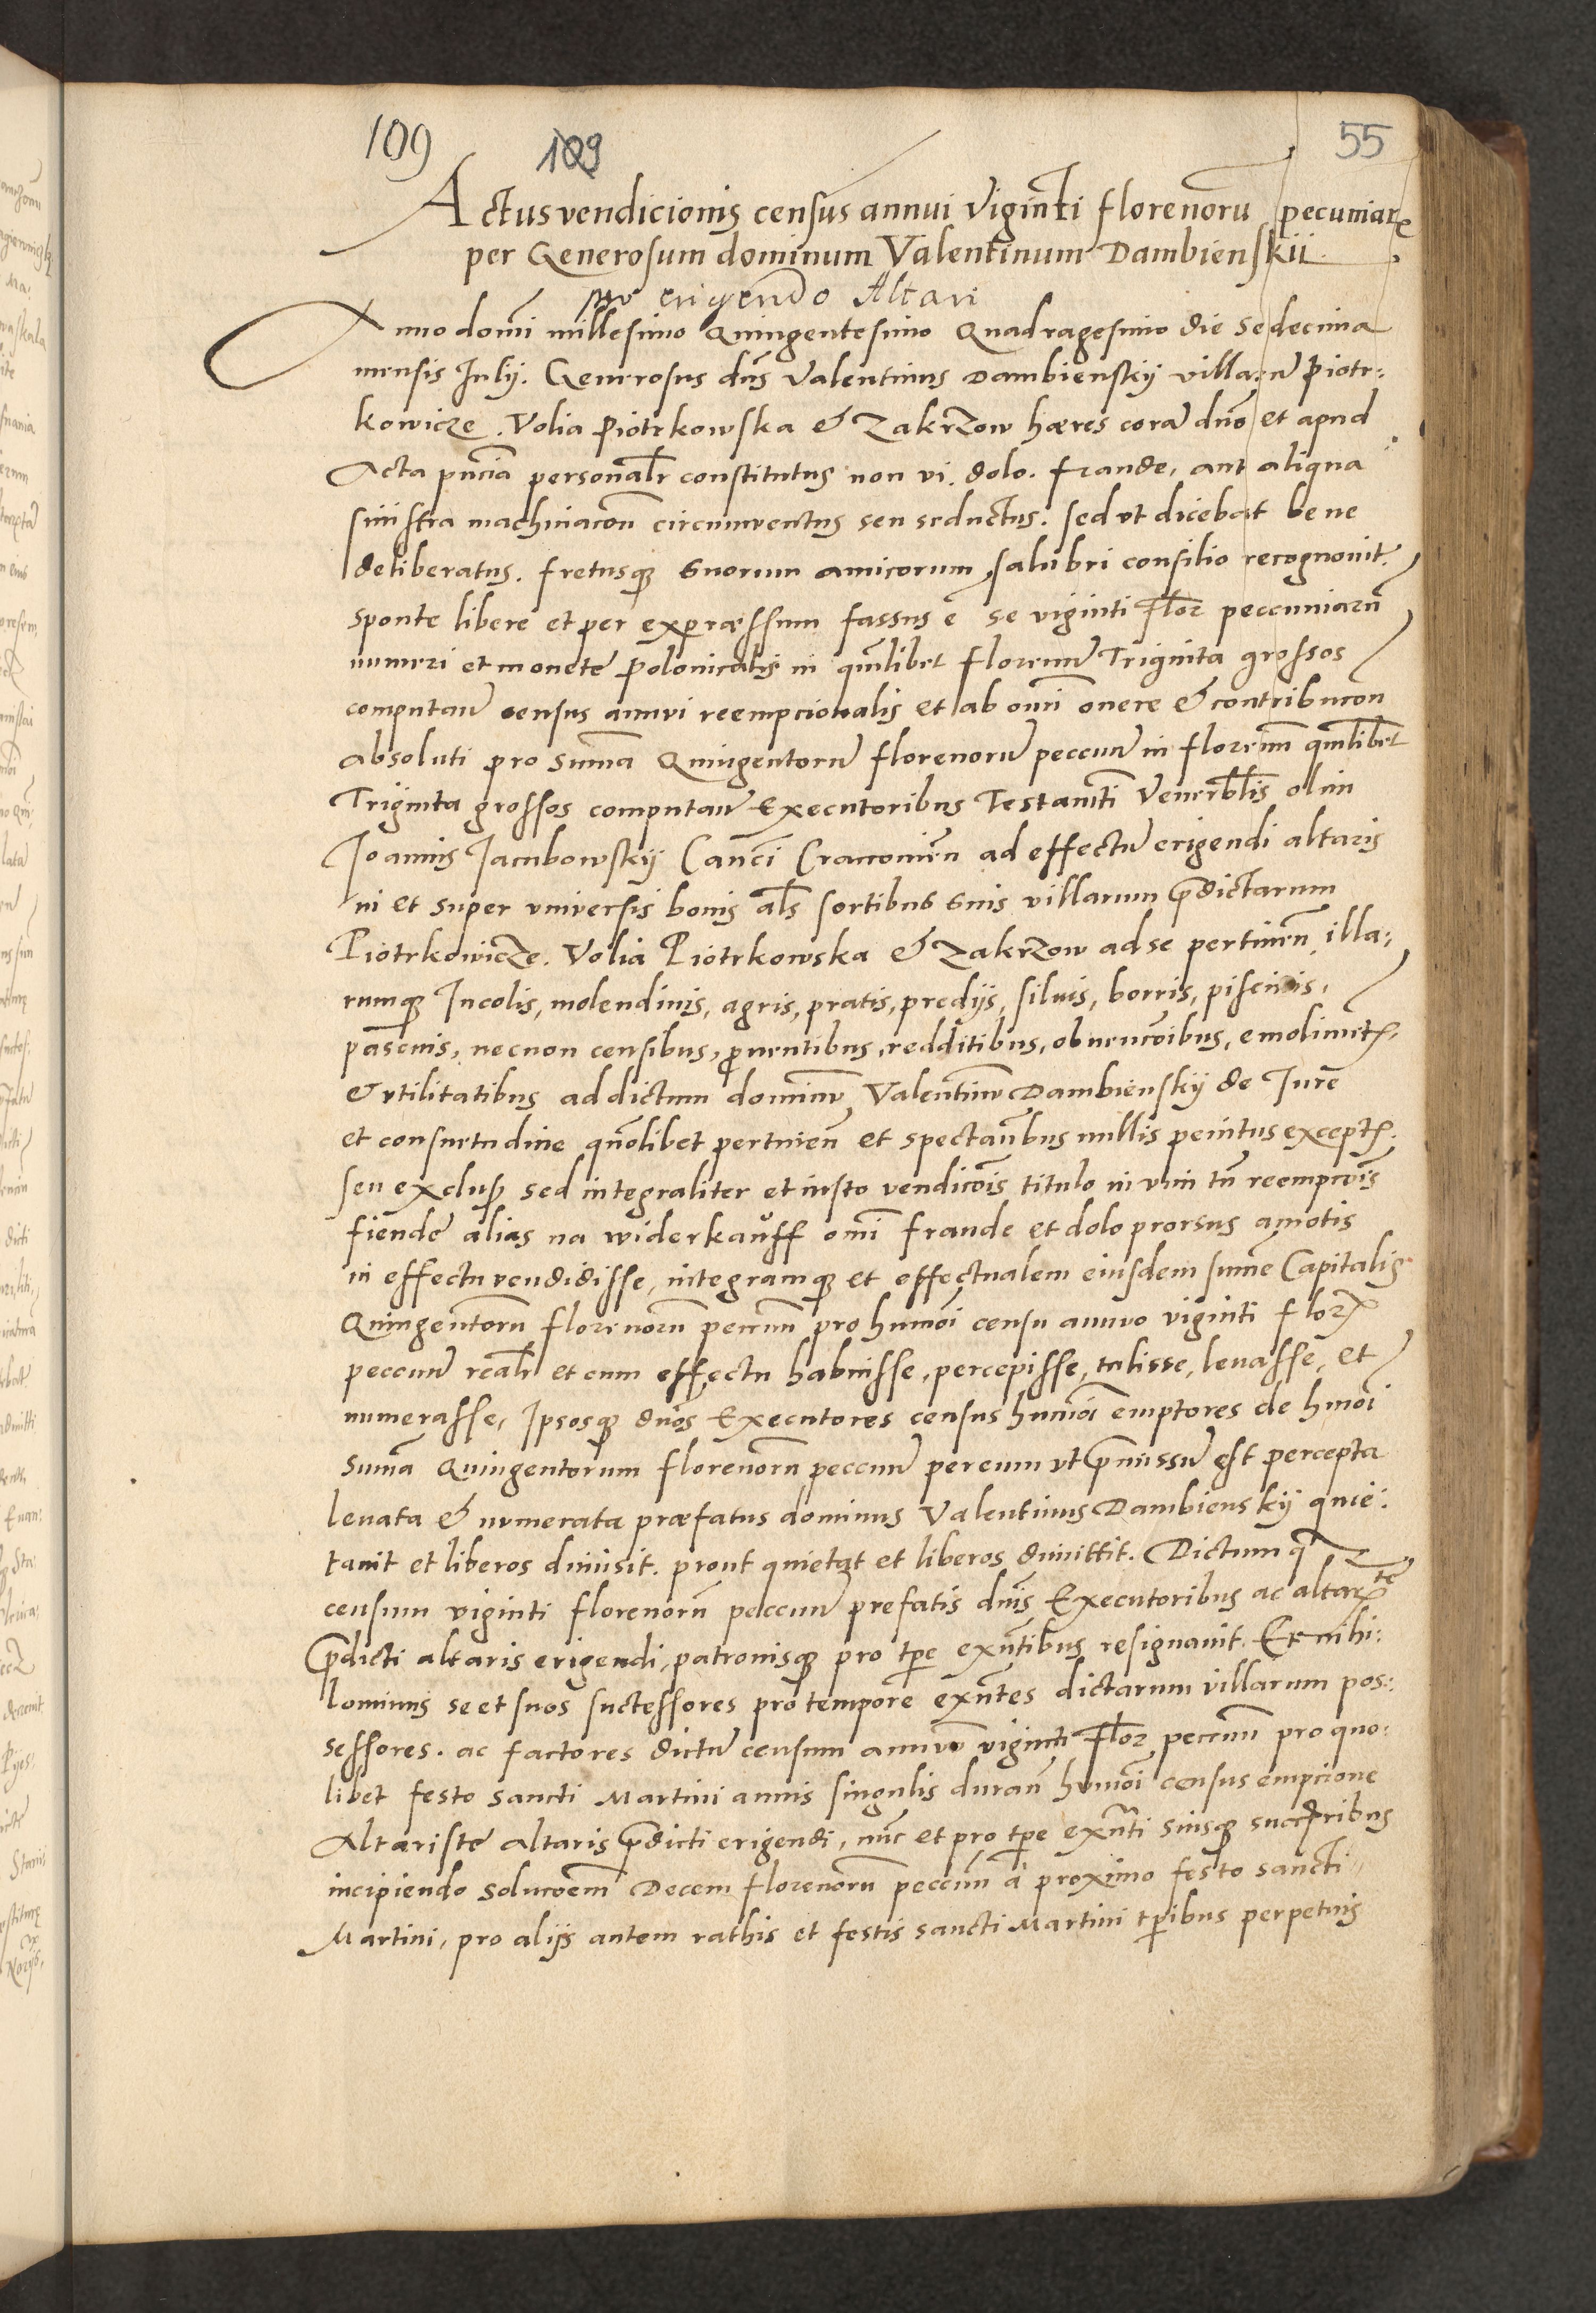 109 109 55
Actus vendicionis census annui Viginti florenorū pecuniarꝝ
per Generosum dominum Valentinum Dambienskii
pro erigendo Altari
Anno domī millesimo Quingentesimo Quadragesimo die sedecima
mensis Julij. Generosus dn̄s Valentinus Dambienskÿ villarū Piotr:
kowicze. Volia Piotrkowska & Zakrzow hæres corā dn̄o et apud
Acta pn̄cia personalr̄ constitutus non vi. dolo. fraude, aut aliqua
sinistra machinacōn circumventus seu seductus. sed vt dicebat bene
deliberatus. fretusqꝫ suorum amicorum salubri consilio recognouit.
sponte libere et per expræssum fassus ē se viginti Flor̄ peccuniarū
numeri et monete Polonicalis in qm̄libet florenū Triginta grossos
computan̄ census annui reempcionalis et ab om̄i onere & contribucōn
absoluti pro sum̄a Quingentorū florenorū peccun̄ in floren̄ qm̄libet
Triginta grossos computan̄ Executoribus Testam̄ti Venerbl̄is olim
Joannis Jacubowskÿ Can̄ci Cracouien̄ ad effectū erigendi altaris
in et super vniversis bonis als̄ sortibus suis villarum p̄dictarum
Piotrkowicze. Volia Piotrkowska & Zakrzow ad se pertinen̄ illa:
rumqꝫ Incolis, molendinis, agris, pratis, predijs, siluis, borris, piscinis,
pascuis, necnon censibus, ꝓuentibus, redditibus, obuencōibus, emolimētꝫ
& vtilitatibus ad dictum dominū Valentinū Dambienskÿ de Jure
et consuetudine quōlibet pertinen̄ et spectan̄bus nullis penitus exceptꝫ
seu exclusꝫ sed integraliter et iusto vendicōis titulo in vim tn̄ reempcōis
fiende alias na widerkauff om̄i fraude et dolo prorsus amotis
in effectu vendidisse, integramqꝫ et effectualem eiusdem sum̄e Capitalis
Quingentorū florenorū peccun̄ pro hmōi censu annuo viginti florꝫ
peccun̄ realr̄ et cum effectu habuisse, percepisse, tulisse, leuasse, et
numerasse, Ipsosqꝫ dn̄os Executores census hmōi emptores de hmōi
sum̄a Quingentorum florenorū peccun̄ per eum vt p̄missū est percepta
leuata & numerata præfatus dominus Valentinus Dambienskÿ quie:
tauit et liberos dimisit. prout quietat et liberos dimittit. Dictumqꝫ
censum viginti florenorū peccun̄ prefatis dn̄is Executoribus ac altarꝫte
p̄dicti altaris erigendi, patronisqꝫ pro tp̄e exn̄tibus resignauit. Et nihi:
lominus se et suos successores pro tempore exn̄tes dictarum villarum pos:
sessores. ac factores dictū censum annuū viginti Flor̄ peccun̄ pro quo:
libet festo sancti Martini annis singulis duran̄ hmōi census empcione
Altariste altaris p̄dicti erigendi, nūc et pro tp̄e exn̄ti suisqꝫ succr̄ibus
incipiendo solucōem Decem florenorū peccun̄ a proximo festo sancti
Martini, pro alijs autem rathis et festis sancti Martini tp̄ibus perpetuis